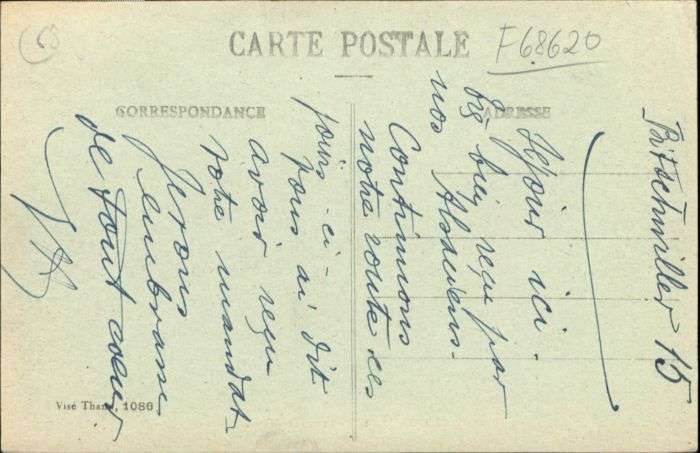 CARTE POSTALE
F68620
68
CORRESPONDANCE
ADRESSE
Bitschwiller 15
Séjour ici.
Eté bien reçu par
nos Alsaciens.
Continuons
notre route ces
jours-ci - ai dit
avoir reçu
votre mandat-
Je vous
embrasse
de tout coeur
Visé Thann, 1086